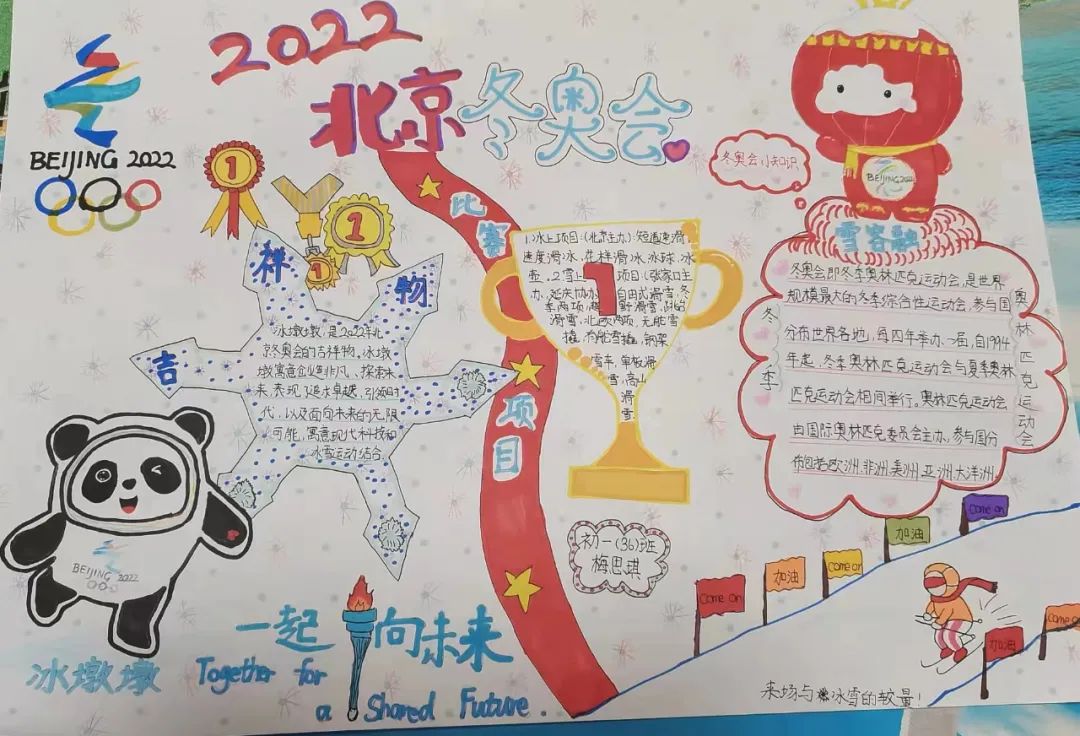 2022
北京冬奥会
BEIJING 2022
1
1
1
吉祥物
冰墩墩,是2022年北
京冬奥会的吉祥物。冰墩
墩寓意
非凡、探索未
来,表现了追求卓越,引领时
代,以及面向未来的无限
可能,寓意现代科技和
冰雪运动结合.
BEIJING 2022
冰墩墩
比赛项目
1.冰上项目:(北京主办):短道速滑
速度滑冰,花样滑冰,冰球,冰
壶,2.雪上项目(张家口主
办,延庆协办)自由式滑雪,冬
季两项,越野滑雪,跳台
滑雪,北欧两项,无舵雪
橇,有舵雪橇,钢架
雪车,单板滑
雪,高山
滑
雪.
1
冬奥会小知识
BEIJING 2022
雪容融
冬季
奥林匹克运动会
冬奥会即冬季奥林匹克运动会,是世界
规模最大的冬季综合性运动会,参与国
分布世界各地,每四年举办一届,自1994
年起,冬季奥林匹克运动会与夏季奥林
匹克运动会相间举行。奥林匹克运动会
由国际奥林匹克委员会主办,参与国分
布包括欧洲、非洲、美洲、亚洲、大洋洲
初一(36)班
梅思琪
一起向未来
Together for
a Shared Future.
come on
加油
come on
加油
come on
加油
come on
来场与冰雪的较量!